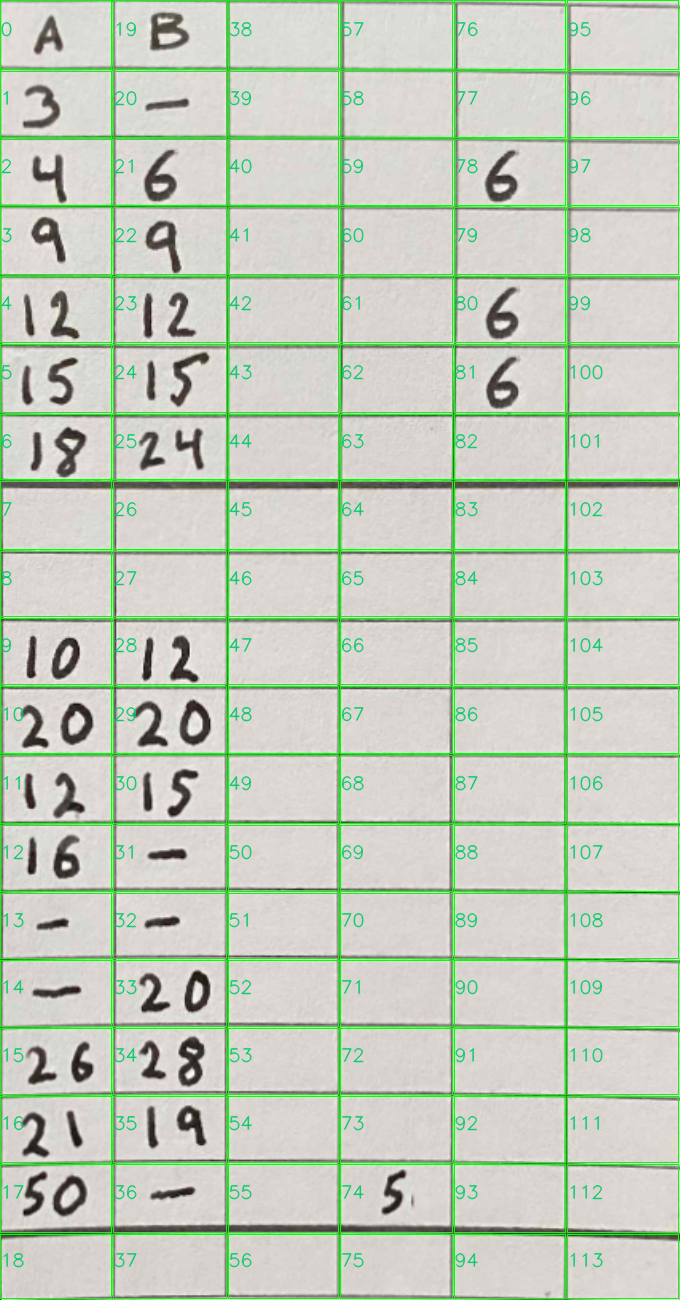 0 A 19 B 38 57 76 95
1 3 20 — 39 58 77 96
2 4 21 6 40 59 78 6 97
3 9 22 9 41 60 79 98
4 12 23 12 42 61 80 6 99
5 15 24 15 43 62 81 6 100
6 18 25 24 44 63 82 101
7 26 45 64 83 102
8 27 46 65 84 103
9 10 28 12 47 66 85 104
10 20 29 20 48 67 86 105
11 12 30 15 49 68 87 106
12 16 31 — 50 69 88 107
13 — 32 — 51 70 89 108
14 — 33 20 52 71 90 109
15 26 34 28 53 72 91 110
16 21 35 19 54 73 92 111
17 50 36 — 55 74 5 93 112
18 37 56 75 94 113